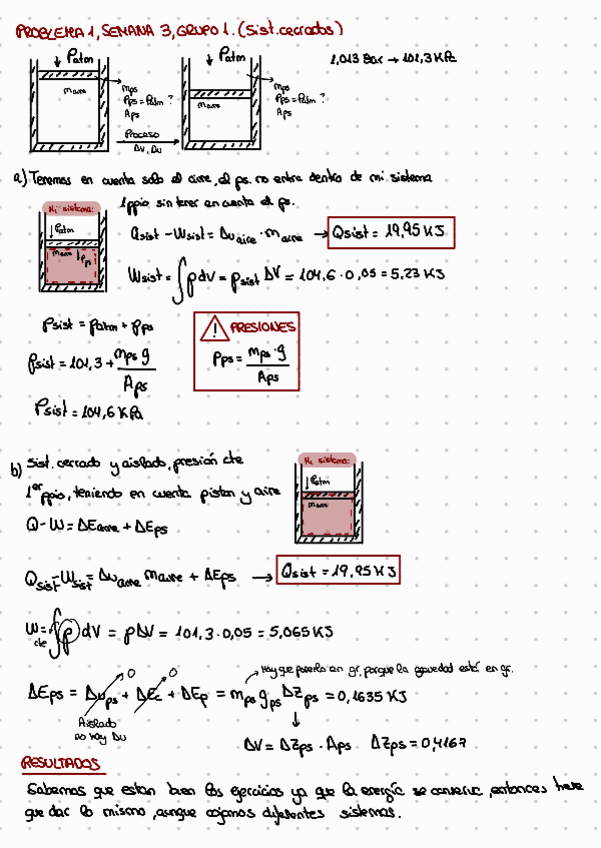 PROBLEMA 1, SEMANA 3, GRUPO 1. (Sist. cerrados)
↓ Patm
↓ Patm
1,013 Bar → 101,3 KPa
maire
mps
Pps = Patm ?
Aps
maire
mps
Pps = Patm ?
Aps
Proceso
ΔV, Δu
a) Tenemos en cuenta solo el aire, el ps. no entra dentro de mi sistema
Mi sistema:
↓Patm
maire ↓Pps
1ppio sin tener en cuenta el ps.
Qsist - Wsist = Δu aire · m aire → Qsist = 19,95 KJ
Wsist = ∫ p dV = psist ΔV = 104,6 · 0,05 = 5,23 KJ
Psist = Patm + Pps
Psist = 101,3 + mps g / Aps
Psist = 104,6 KPa
⚠ PRESIONES
Pps = mps · g / Aps
b) Sist. cerrado y aislado, presión cte
1er ppio, teniendo en cuenta piston y aire
Q - W = ΔEaire + ΔEps
Mi sistema:
↓Patm
maire
Qsist - Wsist = Δu aire m aire + ΔEps → Qsist = 19,95 KJ
W = ∫ p dV = pΔV = 101,3 · 0,05 = 5,065 KJ
cte
Hay que ponerla en gr, porque la gravedad está en gr.
ΔEps = Δups + ΔEc + ΔEp = mps gps ΔZps = 0,1635 KJ
0 0
Aislado
no hay Δu
↓
ΔV = ΔZps · Aps ΔZps = 0,4167
RESULTADOS
Sabemos que estan bien los ejercicios ya que la energía se conserva, entonces tiene
que dar lo mismo, aunque cojamos diferentes sistemas.